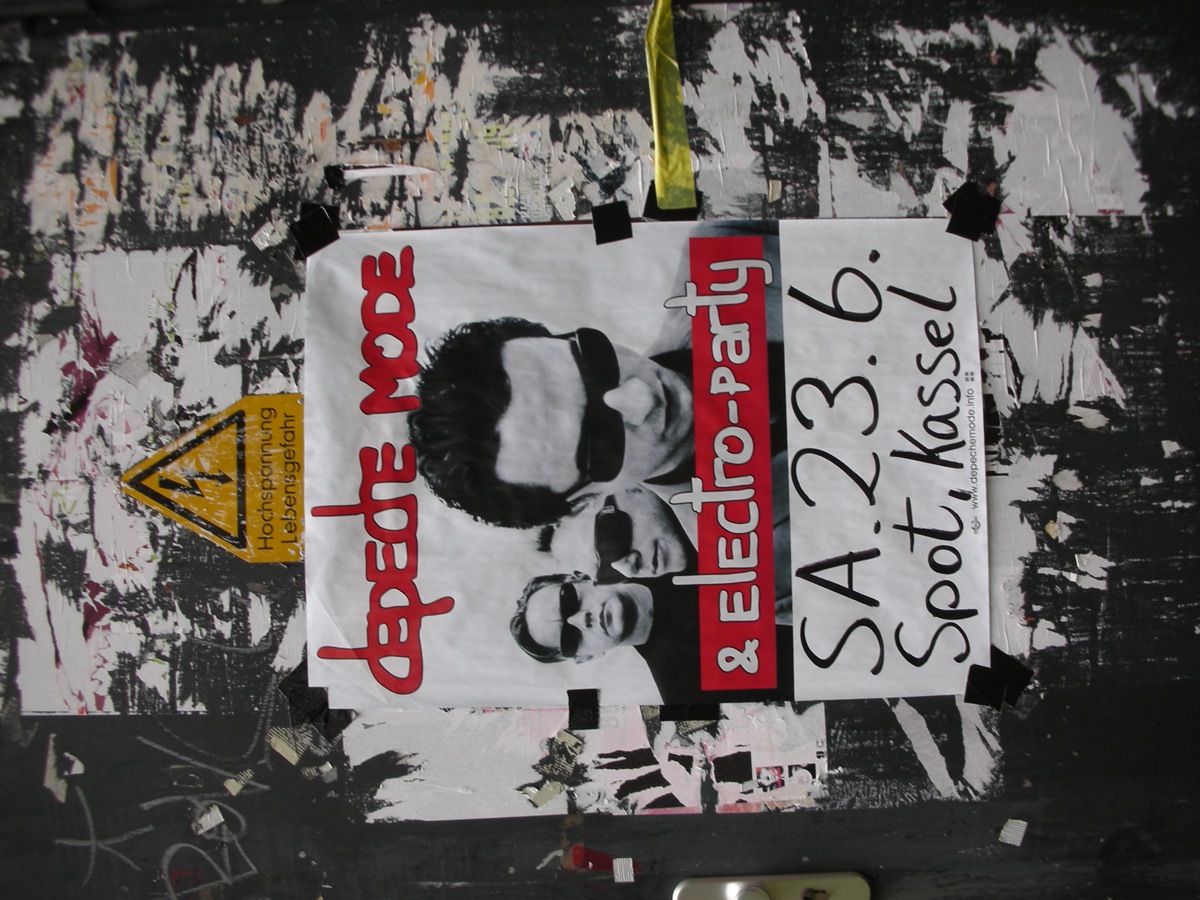 Hochspannung
Lebensgefahr
depeche MODE
& electro-party
SA.23.6.
Spot, Kassel
www.depechemode.info